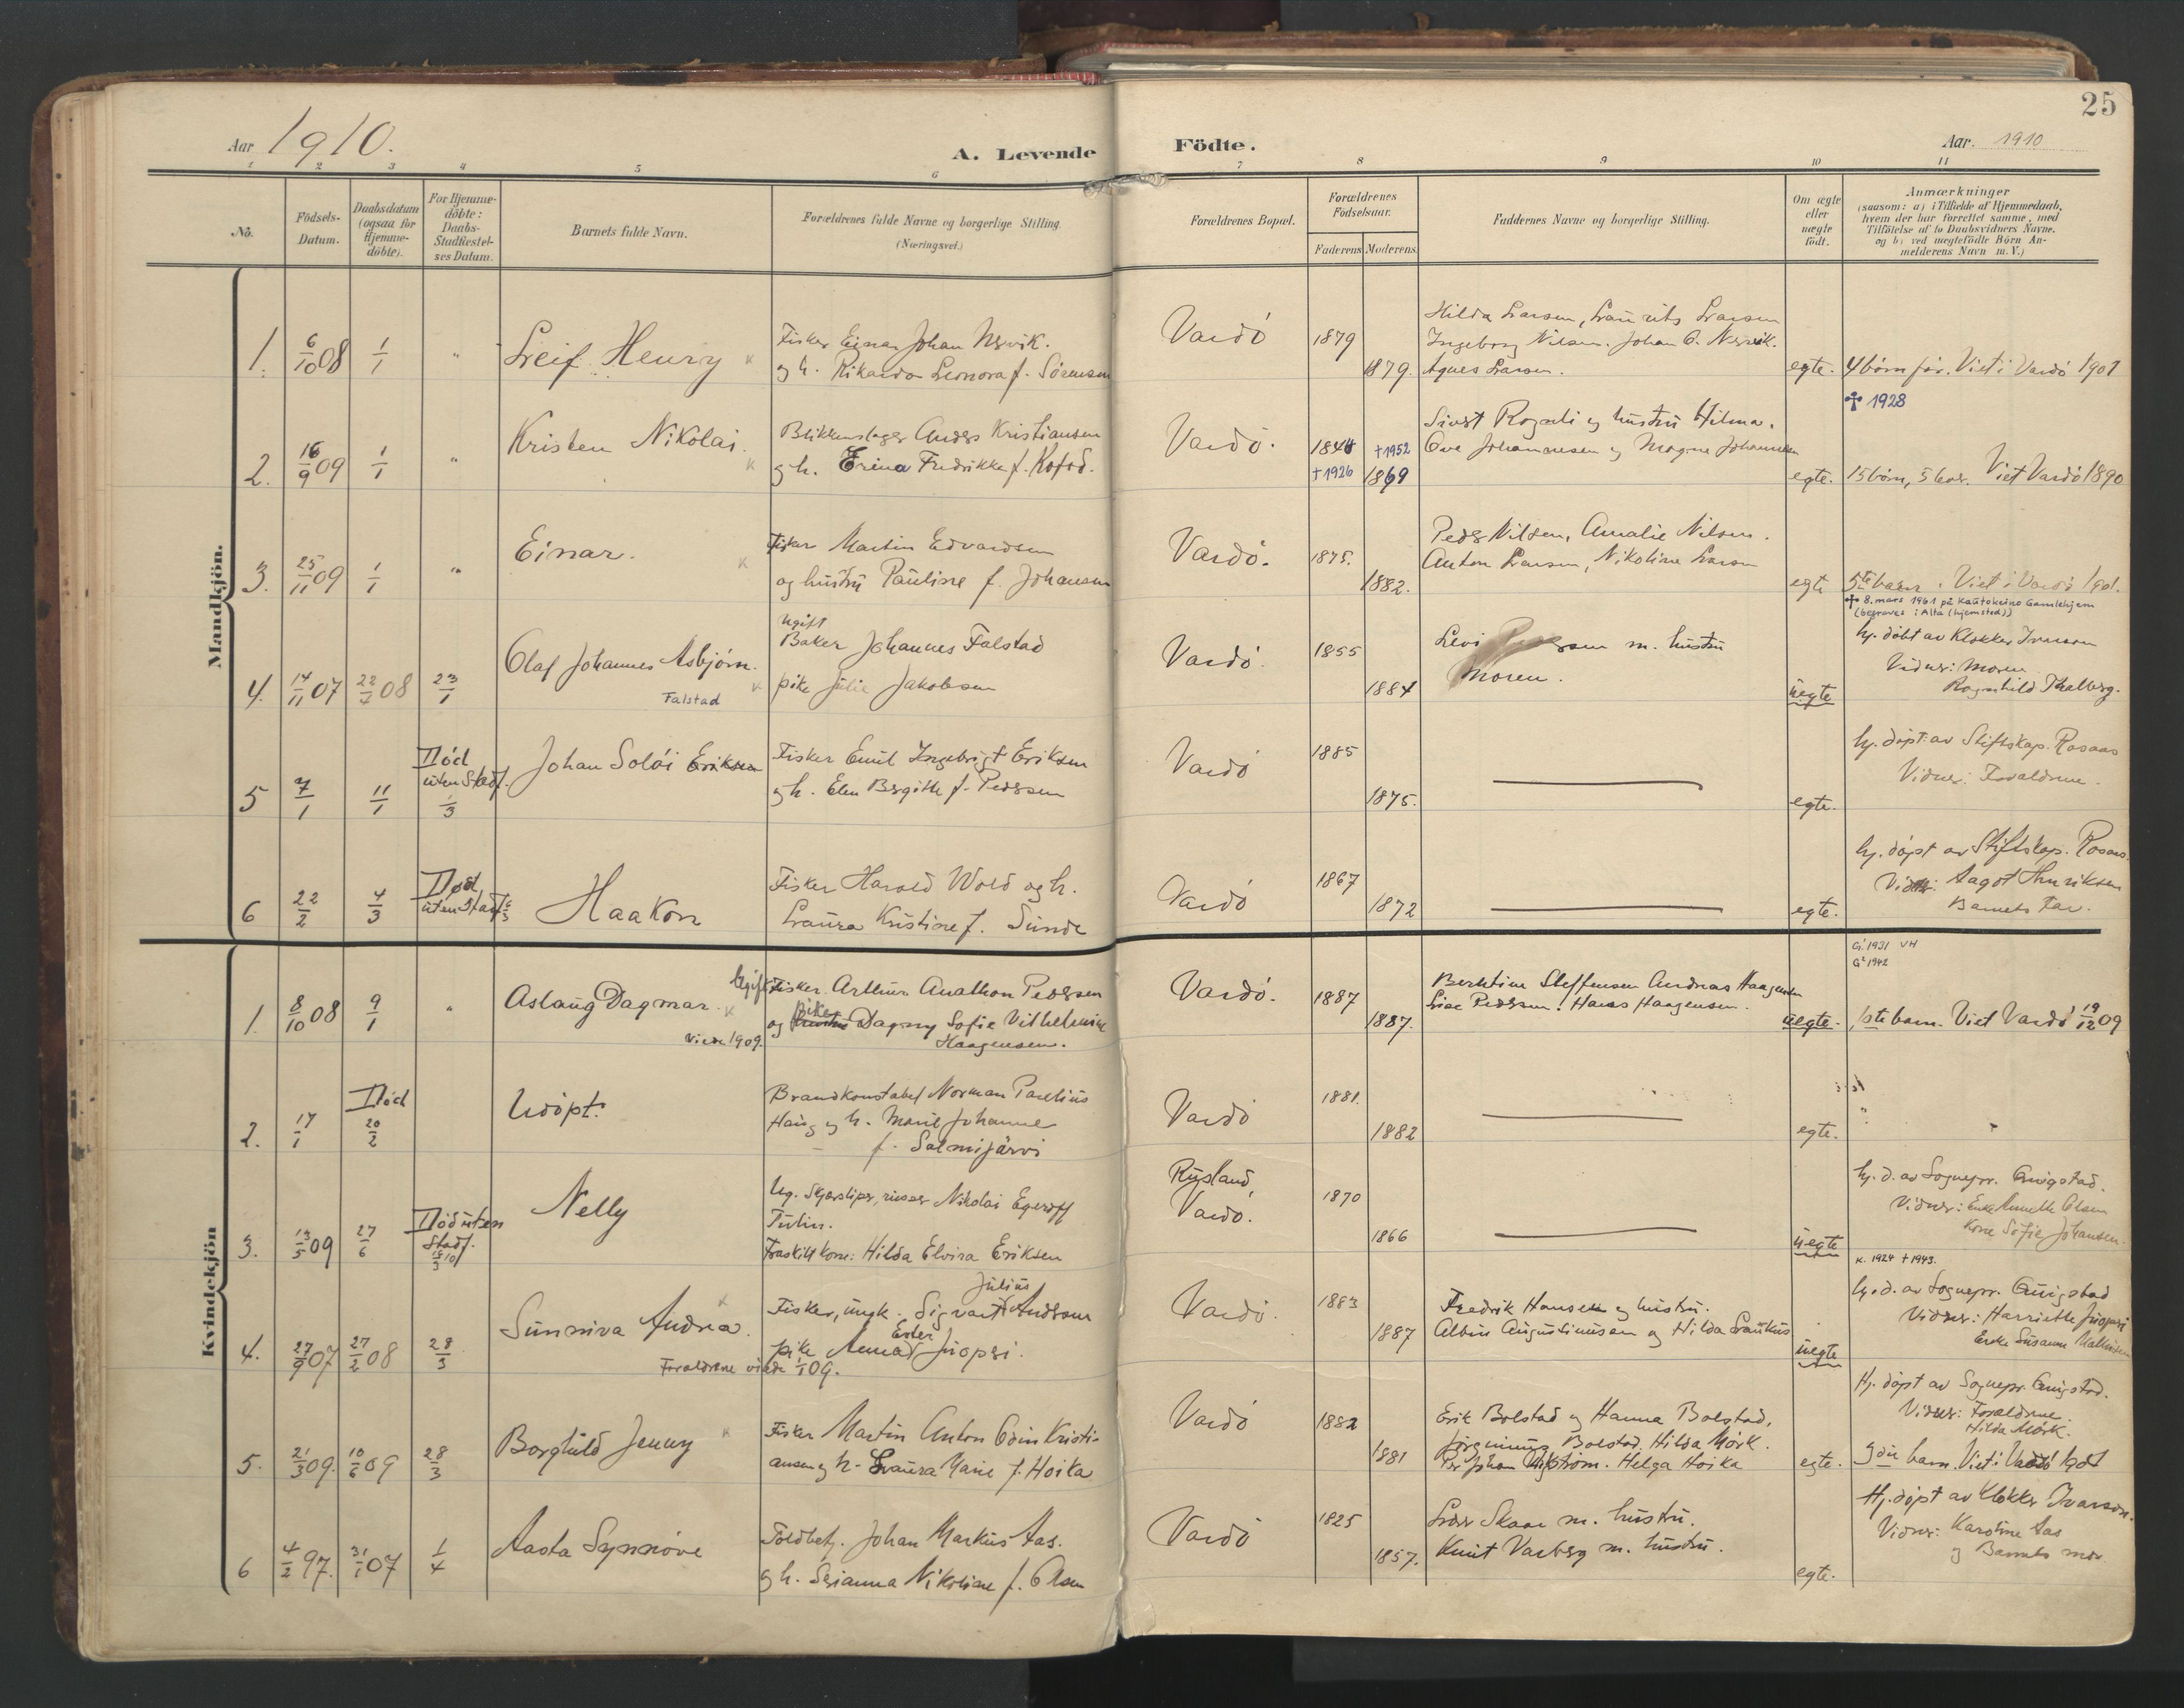 25
Aar 1910.
A. Levende Födte.
Aar. 1910
1 2 3 4 5 6 7 8 9 10 11
No.
Födsels-
Datum.
Daabsdatum
(ogsaa for
Hjemme-
döbte).
For Hjemme-
döbte:
Daabs-
Stadfæstel-
ses Datum.
Barnets fulde Navn.
Forældrenes fulde Navne og borgerlige Stilling
(Næringsvei.)
Forældrenes Bopæl.
Forældrenes
Födselsaar.
Faderens Moderens
Faddernes Navne og borgerlige Stilling.
Om ægte
eller
uægte
födt.
Anmærkninger
(saasom: a) i Tilfælde af Hjemmedaab,
hvem der har forrettet samme, med
Tilföielse af to Daabsvidners Navne,
og b) ved uægtefödte Börn An-
melderens Navn m. V.)
Mandkjön.
1. 6/10 08 1/1 "
Leif Henry
Fisker Einar Johan
og h. Rikarda Leonora f. Sörensen
Vardö
1879
1879.
Hilda Larsen, Laurits Larsen
Ingeborg Nilsen. Johan
Agnes Larsen.
egte.
4 börn för. Viet i Vardö 1901
✝ 1928
2. 16/9 09 1/1 "
Kristen Nikolai.
Blikkenslager Anders Kristiansen
og h. Erina Fredrikke f. Kofod.
Vardö.
1844 †1952
†1926 1869
Sivert Rogeli og hustru Hilma.
Ove Johannesen og Magne Johannesen
egte.
15 börn, 5 lever. Viet Vardö 1890
3. 25/11 09 1/1 "
Einar.
Fisker Martin Edvardsen
og hustru Pauline f. Johansen
Vardö.
1875.
1882.
Peder Nilsen, Amalie Nilsen.
Anton Larsen, Nikoline Larsen
egte
5te barn. Viet i Vardö 1901.
✝ 8. mars 1961 på Kautokeino Gamlehjem
(begraves i Alta (hjemsted))
4. 14/11 07 22/4 08 23/1
Olaf Johannes Asbjörn.
Falstad
Ugift
Baker Johannes Falstad
pike Julie Jakobsen
Vardö.
1855
1884
Levi m. hustru
Moren.
uegte
hj. döbt av Klokker Ivarson
Vidner: Moren
Ragnhild Thalberg.
5 7/1 11/1
Död
uten Stadf.
1/3
Johan Solöi Eriksen
Fisker Emil Ingebrigt Eriksen
og h. Elen Bergitte f. Pedersen
Vardö
1885
1875.
egte.
hj. döpt av Stiftskap. Rosaas
Vidner: Forældrene.
6 22/2 4/3
Död
uten Stadf.
Haakon
Fisker Harald Wold og h.
Laura Kristine f. Sunde
Vardö
1867
1872
egte.
hj. döpt av Stiftskap. Rosaas.
Vidner: Aagot Henriksen
Barnets Far.
Kvindekjön
G¹ 1931 VH
G² 1942
1. 8/10 08 9/1 "
Aslaug Dagmar.
Viede 1909.
Ugift Fisker Arthur Anathon Pedersen
og hustru pike Dagny Sofie Vilhelmine
Haagensen.
Vardö.
1887
1887.
Berntine Steffensen Andreas Haagensen
Lise Pedersen! Hans Haagensen.
uegte.
1ste barn. Viet Vardö 19/12 09
2. 17/1
Död
20/2
Udöpt.
Brandkonstabel Norman Paulius
Haug og h. Marie Johanne
f. Salmijärvi
Vardö
1881.
1882
egte.
3. 13/5 09 27/6
Död uten
Stadf.
15/3 10
Nelly
Ug. Skjærsliper, russer Nikolai Egeroff
Tulin.
Fraskilt kone: Hilda Elvira Eriksen
Rusland,
Vardö.
1870
1866
uegte
hj. d. av Sognepr. Quigstad.
Vidner: Enke Annette Olsen
Kone Sofie Johansen.
K. 1924 † 1943.
4. 27/9 07 27/2 08 28/3
Sunniva Andrea.
Fisker, ungk. Sigvart Julius Andersen
pike Anna Ester Juopsi.
Forældrene viede 1/1 09.
Vardö.
1883
1887
Fredrik Hansen og hustru.
Albin Augustinusen og Hilda Laukus
uegte
hj. d. av Sognepr. Quigstad
Vidner: Harriette Juopsi
Enke Susanne
5. 21/3 09. 10/6 09 28/3
Borghild Jenny
Fisker Martin Anton Odin Kristi-
ansen og h. Laura Marie f. Hoika
Vardö
1882
1881
Erik Bolstad og Hanna Bolstad,
Bolstad, Hilda Mörk.
Per Johan. Helga Hoika
egte.
Hj. döpt av Sognepr. Quigstad.
Vidner: Forældrene.
Hilda Mörk.
3die barn. Viet i Vardö 1901
6 4/2 97. 31/1 07 1/4
Aasta Synnöve
Toldbetj. Johan Markus Aas.
og h. Serianna Nikoline f. Olsen
Vardö
1825
1857.
Skaar m. hustru.
Knut Varberg m. hustru.
egte.
Hj. döpt av Klokker Ivarson.
Vidner: Karoline Aas
og Barnets mor